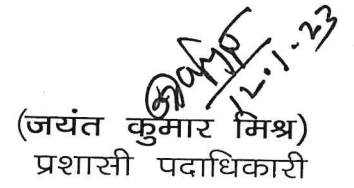 12.1.23
(जयंत कुमार मिश्र)
प्रशासी पदाधिकारी